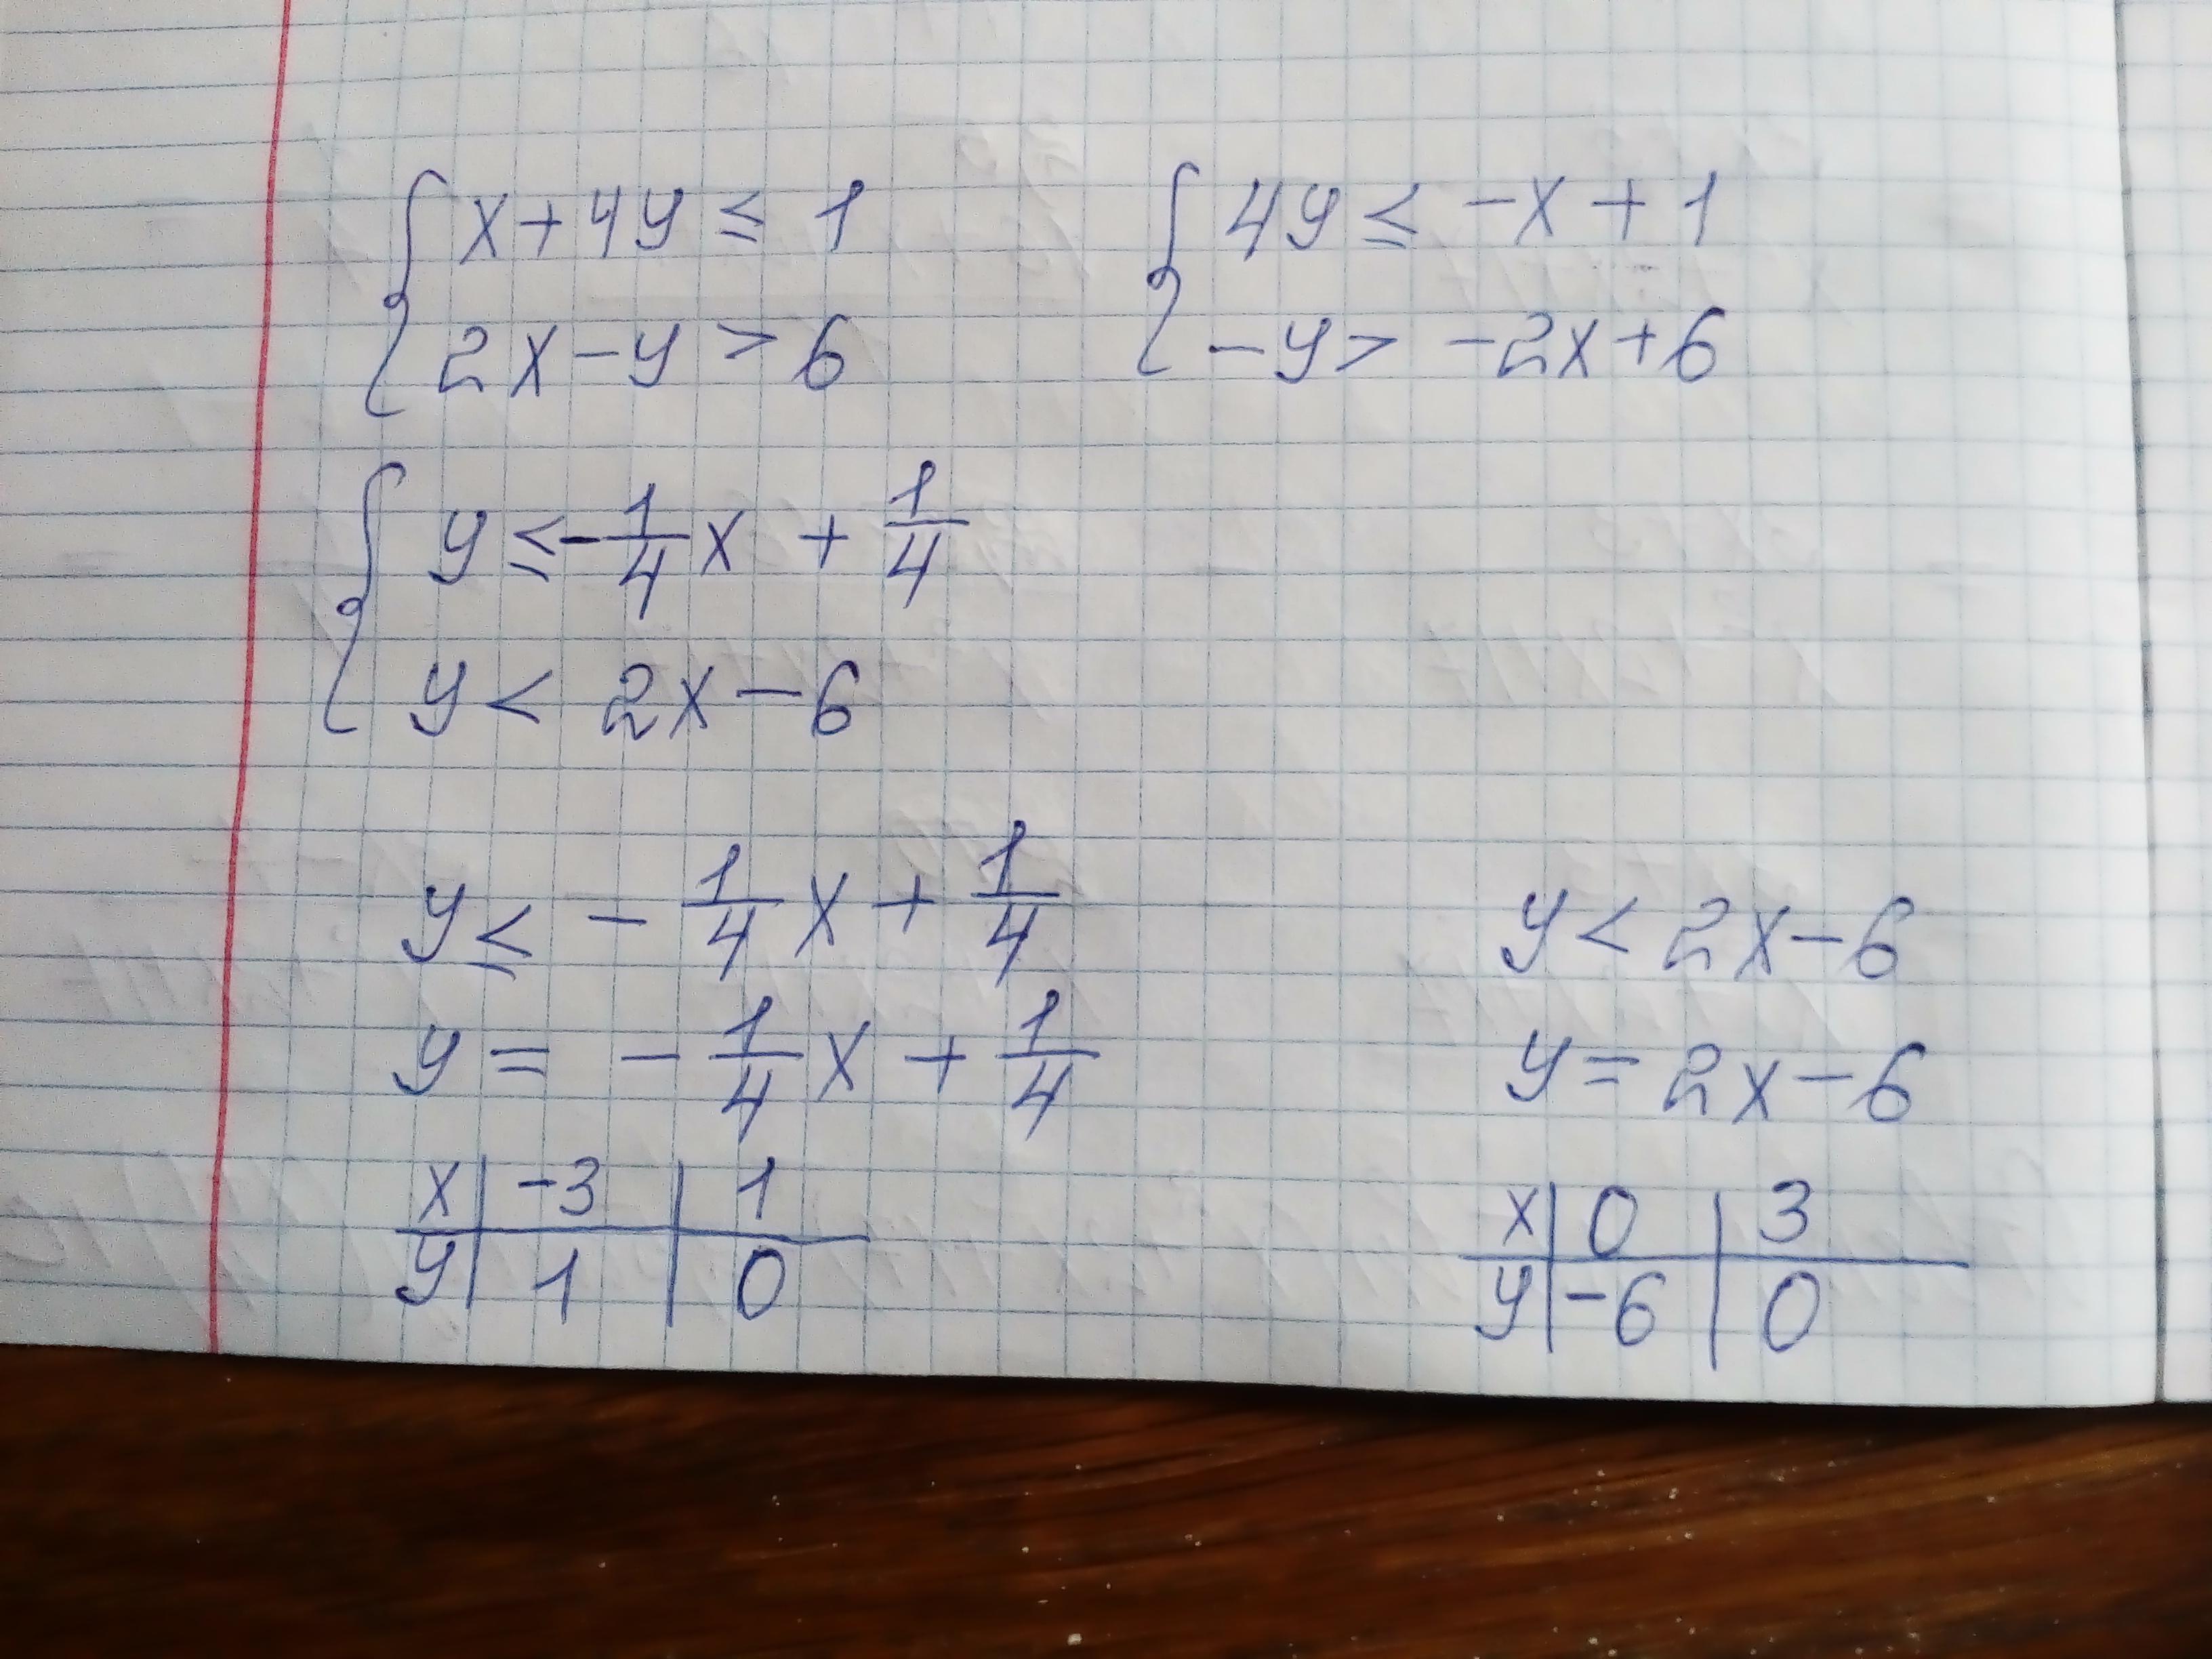 { x + 4y ≤ 1
2x - y > 6
{ 4y ≤ -x + 1
-y > -2x + 6
{ y ≤ -1/4 x + 1/4
y < 2x - 6
y ≤ -1/4 x + 1/4
y = -1/4 x + 1/4
x | -3 | 1
y | 1 | 0
y < 2x - 6
y = 2x - 6
x | 0 | 3
y | -6 | 0